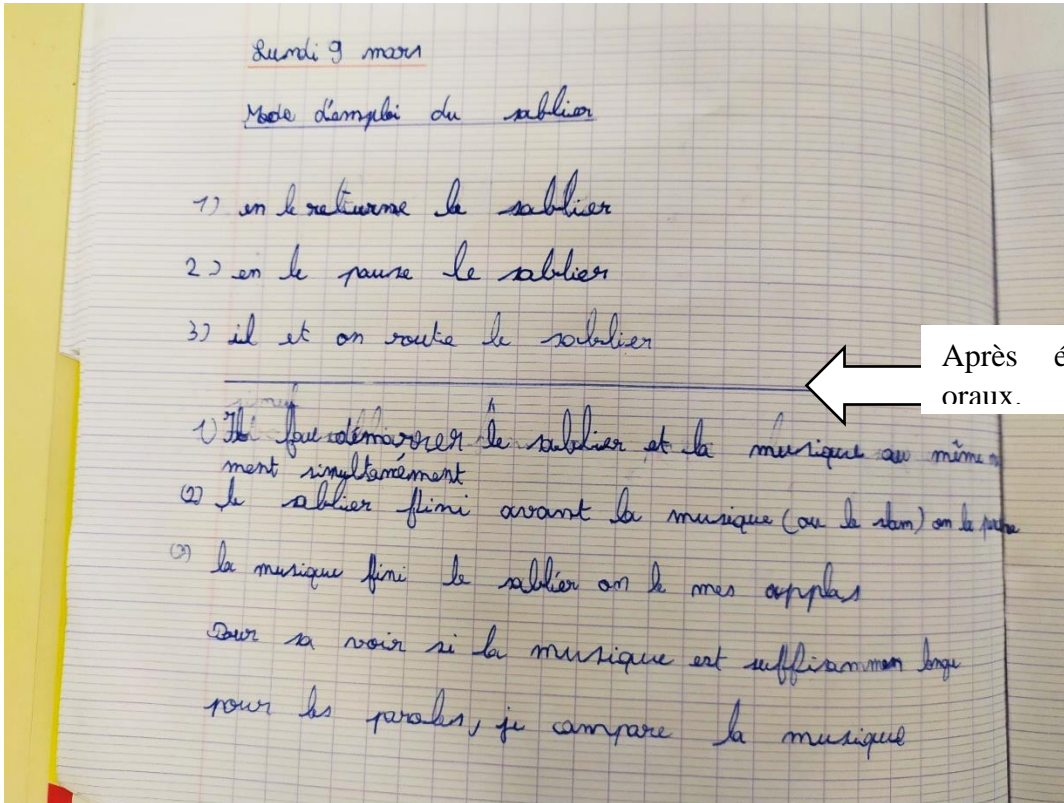 Lundi 9 mars
Mode d'emploi du sablier
1) en le returne le sablier
2) en le pause le sablier
3) il et on route le sablier
Après é
oraux.
1) Il fau démarrer le sablier et la musique au même
ment simyltanément
(2) le sablier fini avant la musique (ou le slam) on la
(3) la musique fini le sablier on le mes applas
Pour sa voir si la musique est suffisammen longue
pour les paroles, je compare la musique